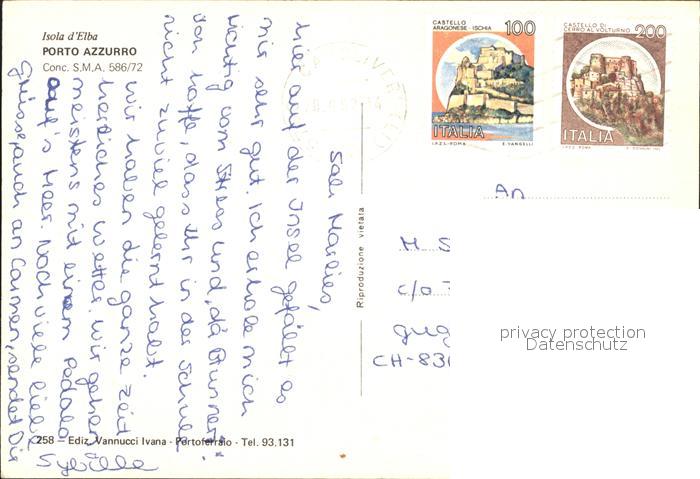 Isola d'Elba
PORTO AZZURRO
Conc. S.M.A. 586/72
CASTELLO
ARAGONESE - ISCHIA 100
ITALIA
I.P.Z.S. - ROMA E. VANGELLI
CASTELLO DI
CERRO AL VOLTURNO 200
ITALIA
I.P.Z.S. ROMA
Sali Marlies,
hier auf der Insel gefällt es
mir sehr gut. Ich erhole mich
richtig vom Stress und
Ich hoffe, dass Ihr in der Schule
nicht zuviel gelernt habt.
Wir haben die ganze Zeit
herrliches Wetter. Wir gehen
meistens mit einem Pedalo
auf's Meer. Noch viele liebe
Grüsse, auch an Carmen, sendet Dir
Sybille
Riproduzione vietata
An
M S
c/o
gug
CH-831
privacy protection
Datenschutz
258 - Ediz. Vannucci Ivana - Portoferraio - Tel. 93.131